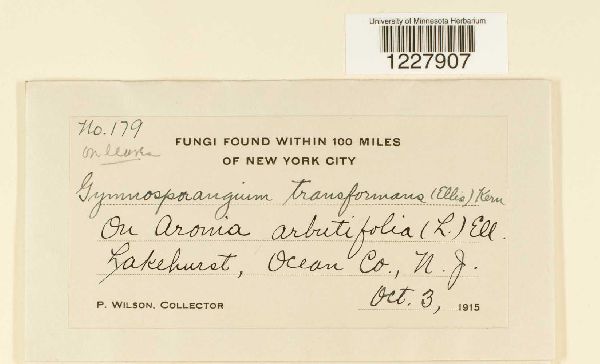 University of Minnesota Herbarium
1227907
No. 179
on leaves
FUNGI FOUND WITHIN 100 MILES
OF NEW YORK CITY
Gymnosporangium transformans (Ellis) Kern
On Aronia arbutifolia (L.) Ell.
Lakehurst, Ocean Co., N. J.
Oct. 3, 1915
P. WILSON, COLLECTOR